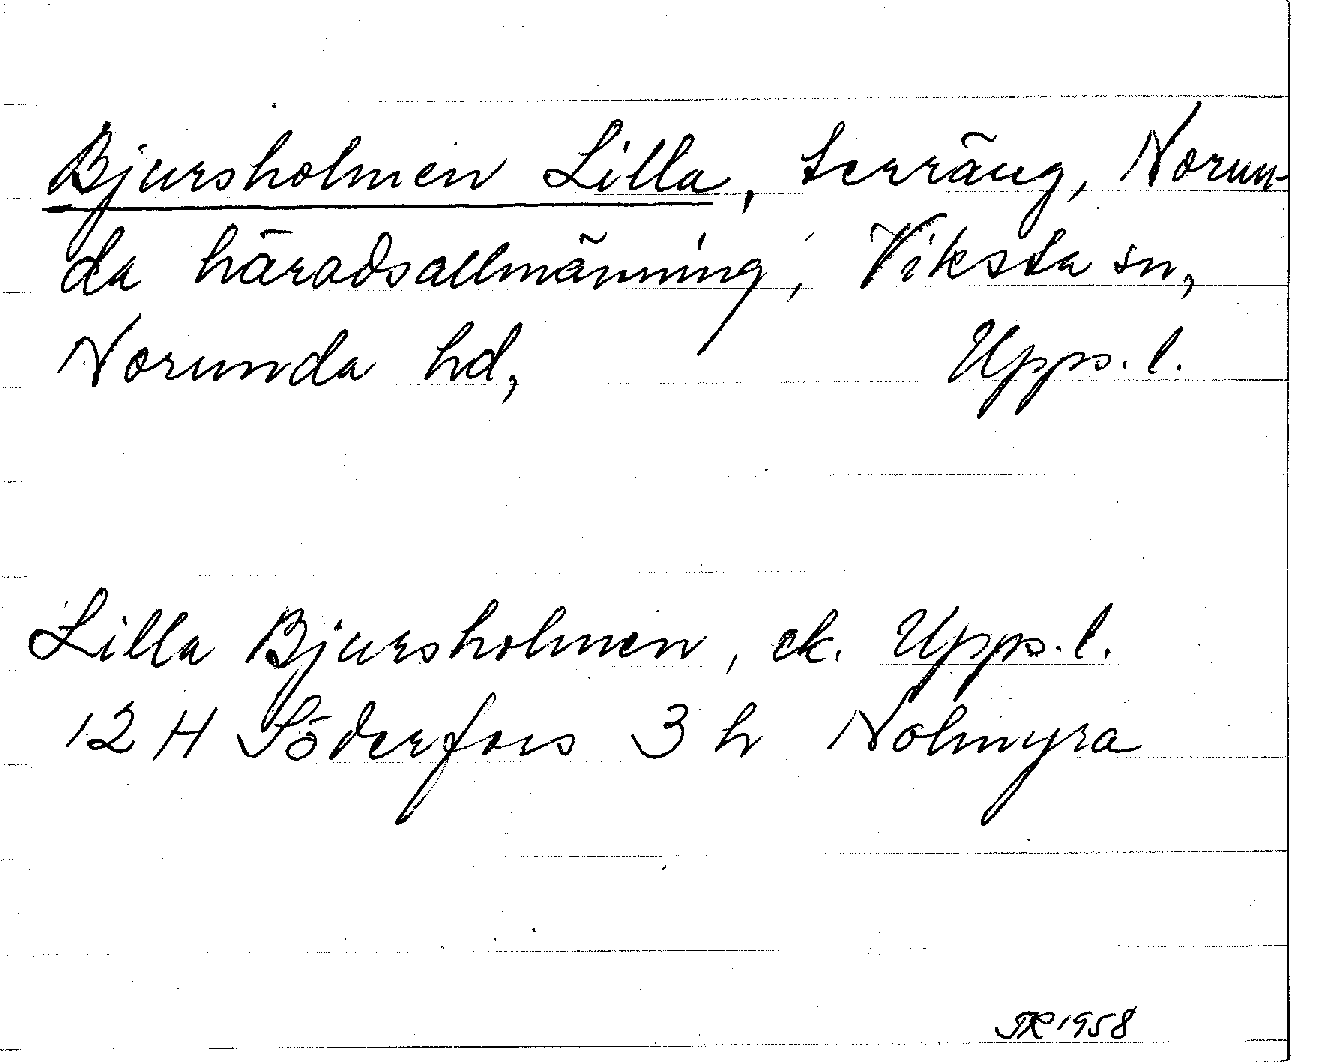 Bjursholmen Lilla, terräng, Norun-
da häradsallmänning, Viksta sn,
Norunda hd, Upps. l.
Lilla Bjursholmen, ek. Upps. l.
12 H Söderfors 3 h Nolmyra
TR 1958